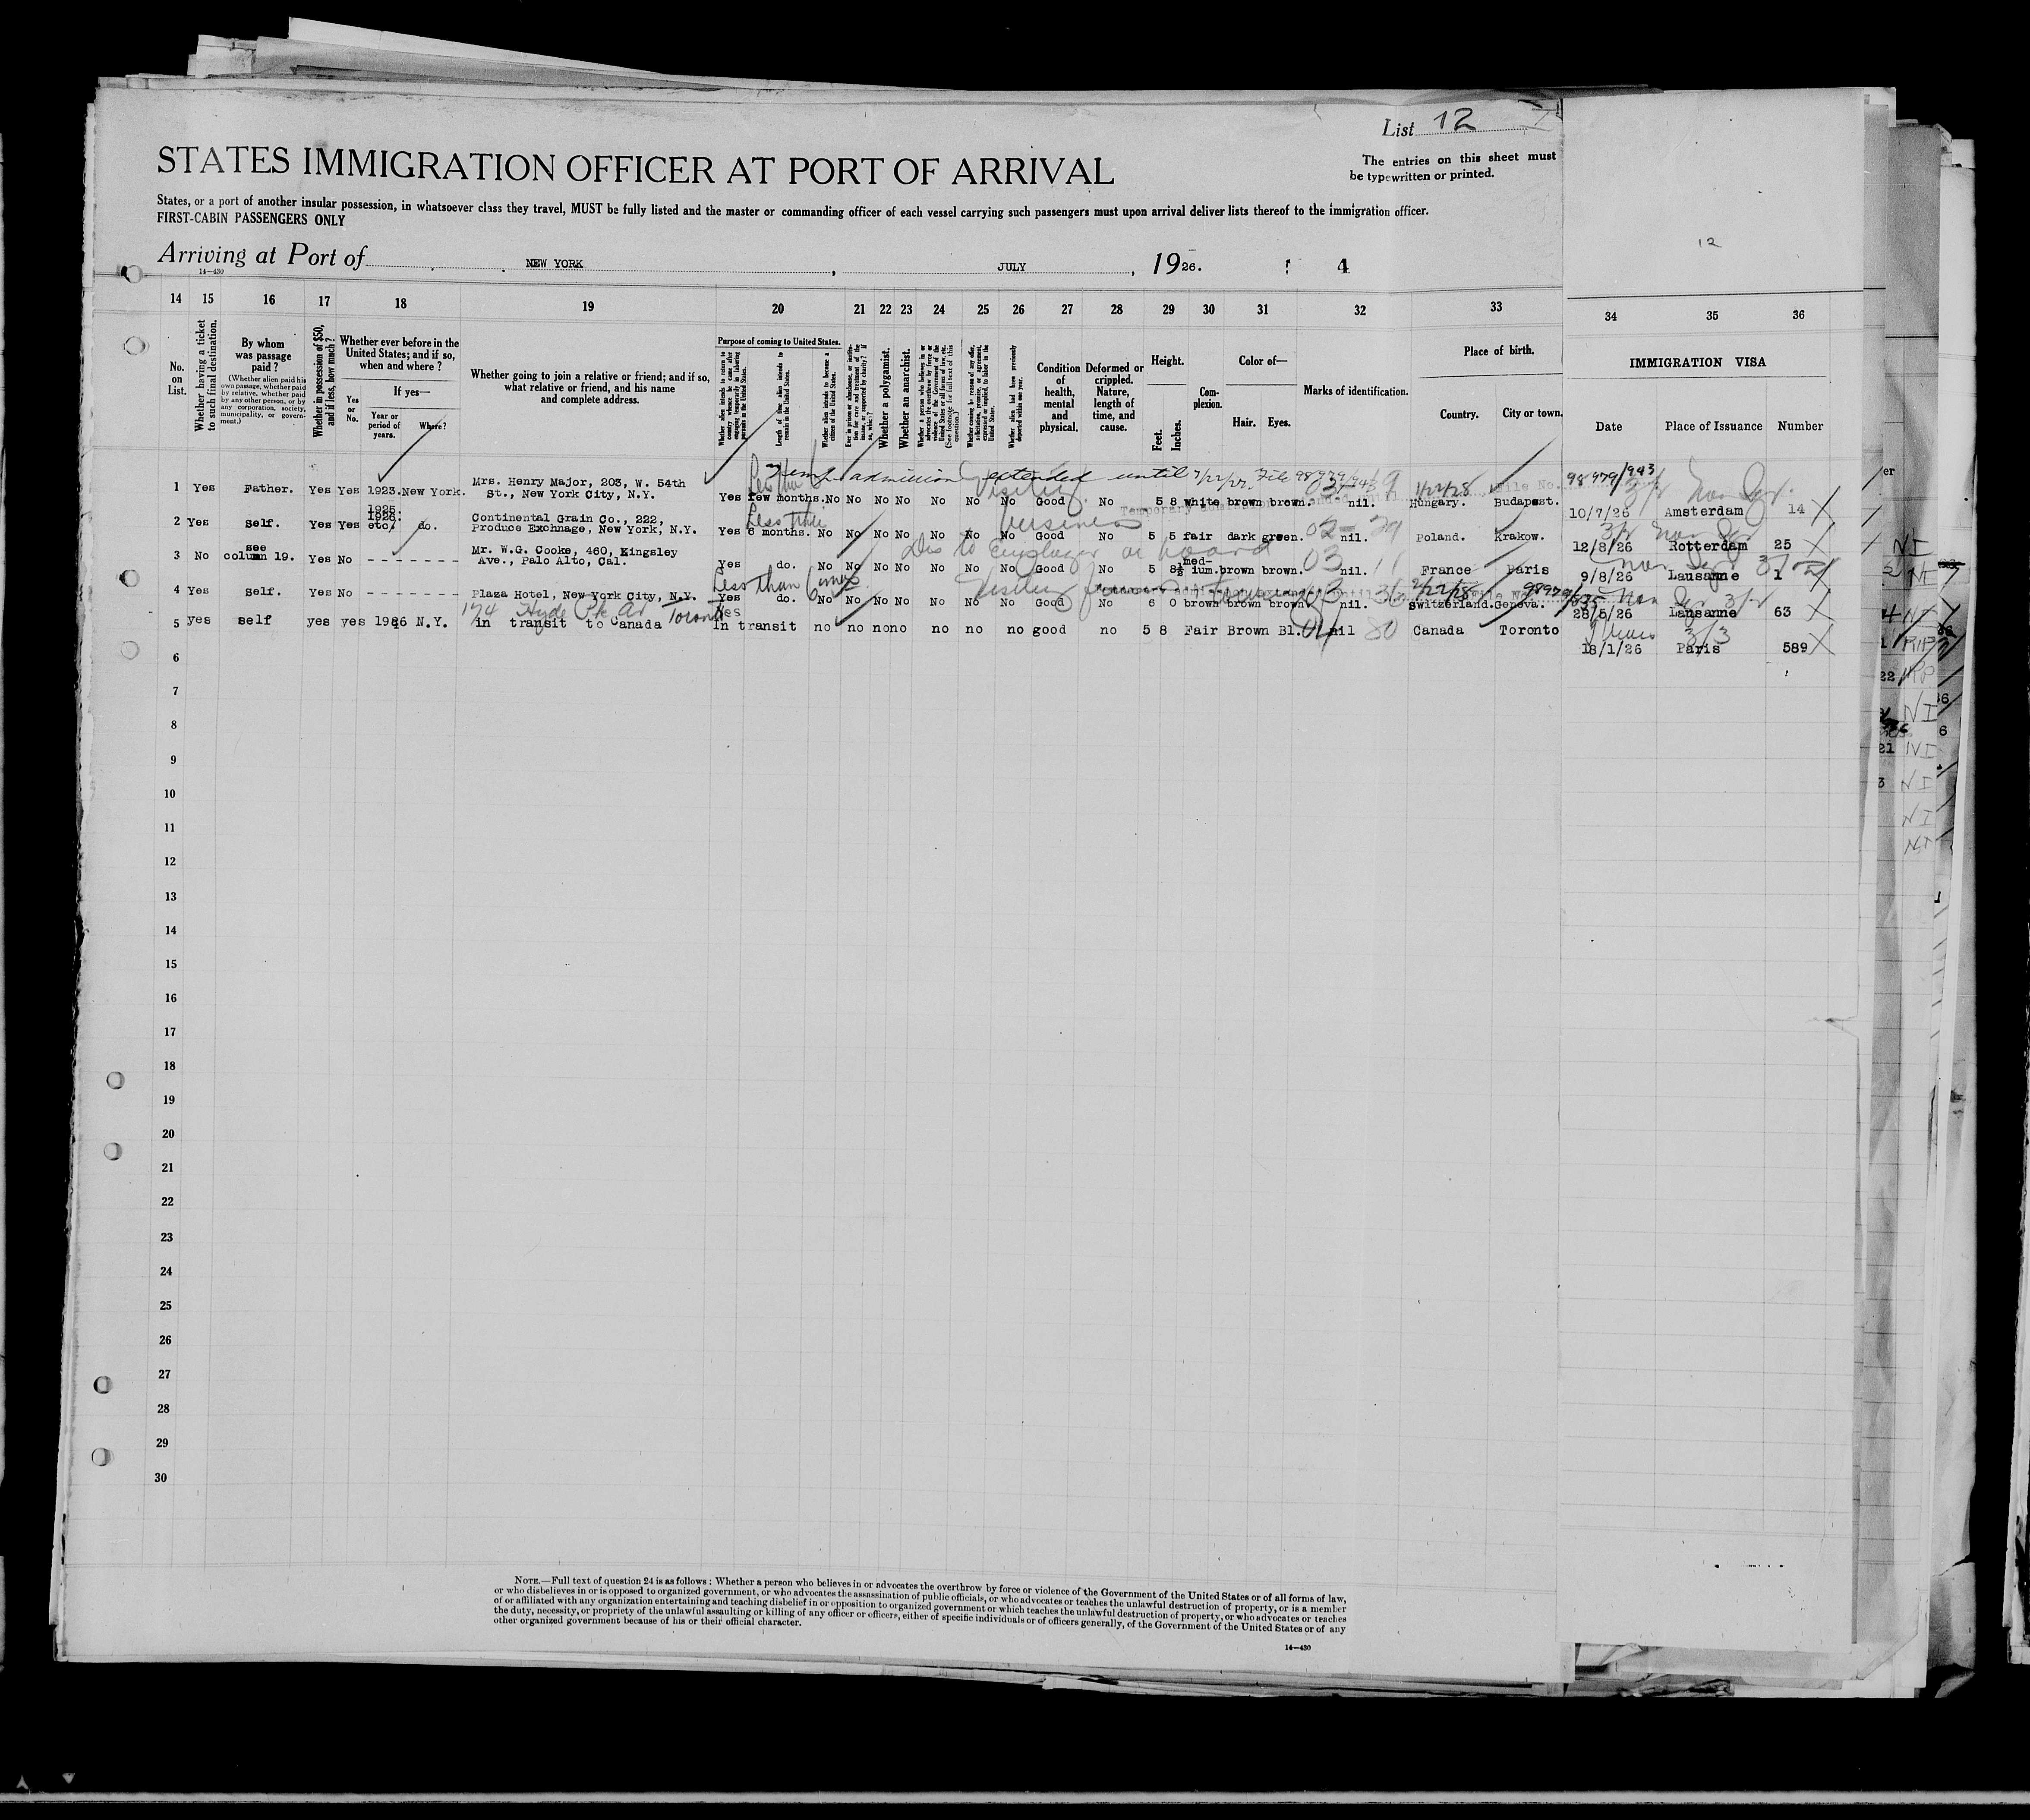 List 12
STATES IMMIGRATION OFFICER AT PORT OF ARRIVAL
The entries on this sheet must
be typewritten or printed.
States, or a port of another insular possession, in whatsoever class they travel, MUST be fully listed and the master or commanding officer of each vessel carrying such passengers must upon arrival deliver lists thereof to the immigration officer.
FIRST-CABIN PASSENGERS ONLY
12
Arriving at Port of NEW YORK, JULY, 1926. 4
14—430
14 15 16 17 18 19 20 21 22 23 24 25 26 27 28 29 30 31 32 33 34 35 36
No. on List.
Whether having a ticket to such final destination.
By whom was passage paid?
(Whether alien paid his own passage, whether paid by relative, whether paid by any other person, or by any corporation, society, municipality, or government.)
Whether in possession of $50, and if less, how much?
Whether ever before in the United States; and if so, when and where?
Yes or No.
If yes—
Year or period of years.
Where?
Whether going to join a relative or friend; and if so, what relative or friend, and his name and complete address.
Purpose of coming to United States.
Length of time alien intends to remain in the United States.
Whether alien intends to become a citizen of the United States.
Whether a polygamist.
Whether an anarchist.
Condition of health, mental and physical.
Deformed or crippled. Nature, length of time, and cause.
Height.
Feet. Inches.
Complexion.
Color of—
Hair. Eyes.
Marks of identification.
Place of birth.
Country. City or town.
IMMIGRATION VISA
Date Place of Issuance Number
Temp admission extended until 7/22/27. File 98979/943
Less than Visiting 03 9 1/22/28 File No. 98979/943
1 Yes Father. Yes Yes 1923. New York. Mrs. Henry Major, 203, W. 54th St., New York City, N.Y. Yes few months. No No No No No No No Good No 5 8 white brown brown. nil. Hungary. Budapest. 10/7/26 Amsterdam 14
Less than business 02 29
2 Yes Self. Yes Yes 1925. 1926. etc. do. Continental Grain Co., 222, Produce Exchnage, New York, N.Y. Yes 6 months. No No No No No No No Good No 5 5 fair dark green. nil. Poland. Krakow. 12/8/26 Rotterdam 25
Dis to Employer on board 03 11
3 No see column 19. Yes No - - - - - - - Mr. W.G. Cooke, 460, Kingsley Ave., Palo Alto, Cal. Yes do. No No No No No No No Good No 5 8½ med-ium. brown brown. nil. France Paris 9/8/26 Lausanne 1
Less than 6 mos Visiting 03 36 2/22/28 File No. 98979/835
4 Yes Self. Yes No - - - - - - - Plaza Hotel, New York City, N.Y. Yes do. No No No No No No No Good No 6 0 brown brown brown nil. Switzerland. Geneva. 28/5/26 Lausanne 63
174 Hyde Pk Av Toronto Yes 04 80
5 yes self yes yes 1926 N.Y. in transit to Canada In transit no no no no no no no good no 5 8 Fair Brown Bl. nil Canada Toronto 18/1/26 Paris 589
6
7
8
9
10
11
12
13
14
15
16
17
18
19
20
21
22
23
24
25
26
27
28
29
30
NOTE.—Full text of question 24 is as follows: Whether a person who believes in or advocates the overthrow by force or violence of the Government of the United States or of all forms of law,
or who disbelieves in or is opposed to organized government, or who advocates the assassination of public officials, or who advocates or teaches the unlawful destruction of property, or is a member
of or affiliated with any organization entertaining and teaching disbelief in or opposition to organized government or which teaches the unlawful destruction of property, or who advocates or teaches
the duty, necessity, or propriety of the unlawful assaulting or killing of any officer or officers, either of specific individuals or of officers generally, of the Government of the United States or of any
other organized government because of his or their official character.
14—430